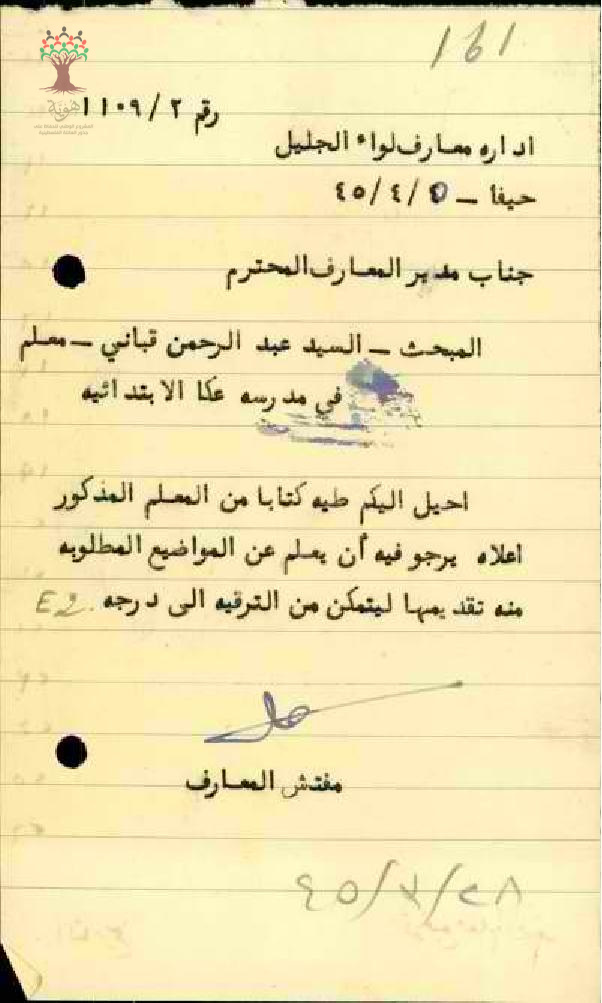 ١٦١
هوية
رقم ٢/ ١١٠٩
اداره معارف لواء الجليل
حيفا – ٥/ ٤/ ٤٥
جناب مدير المعارف المحترم
المبحث – السيد عبد الرحمن قباني – معلم
في مدرسه عكا الابتدائيه
احيل اليكم طيه كتابا من المعلم المذكور
اعلاه يرجو فيه أن يعلم عن المواضيع المطلوبه
منه تقديمها ليتمكن من الترقيه الى درجه E2.
مفتش المعارف